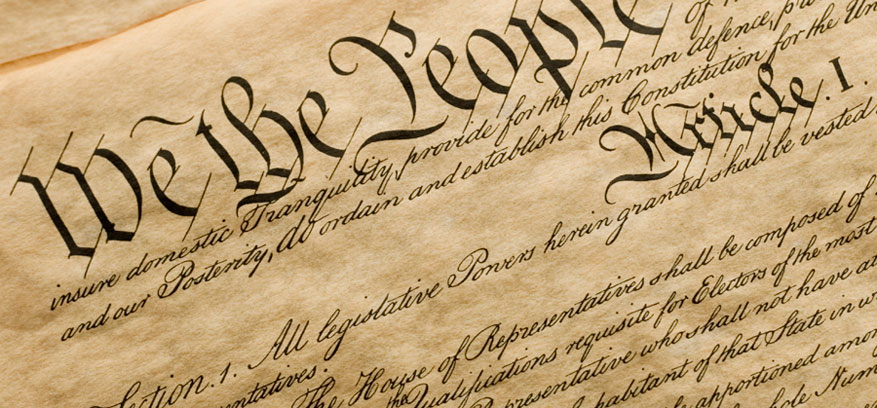 We the People of
insure domestic Tranquility, provide for the common defence, pro
and our Posterity, do ordain and establish this Constitution for the Un
Article. I.
Section. 1. All legislative Powers herein granted shall be vested
entatives.
The House of Representatives shall be composed of
the Qualifications requisite for Electors of the most
Representative who shall not have at
habitant of that State in w
apportioned amon
hole Num